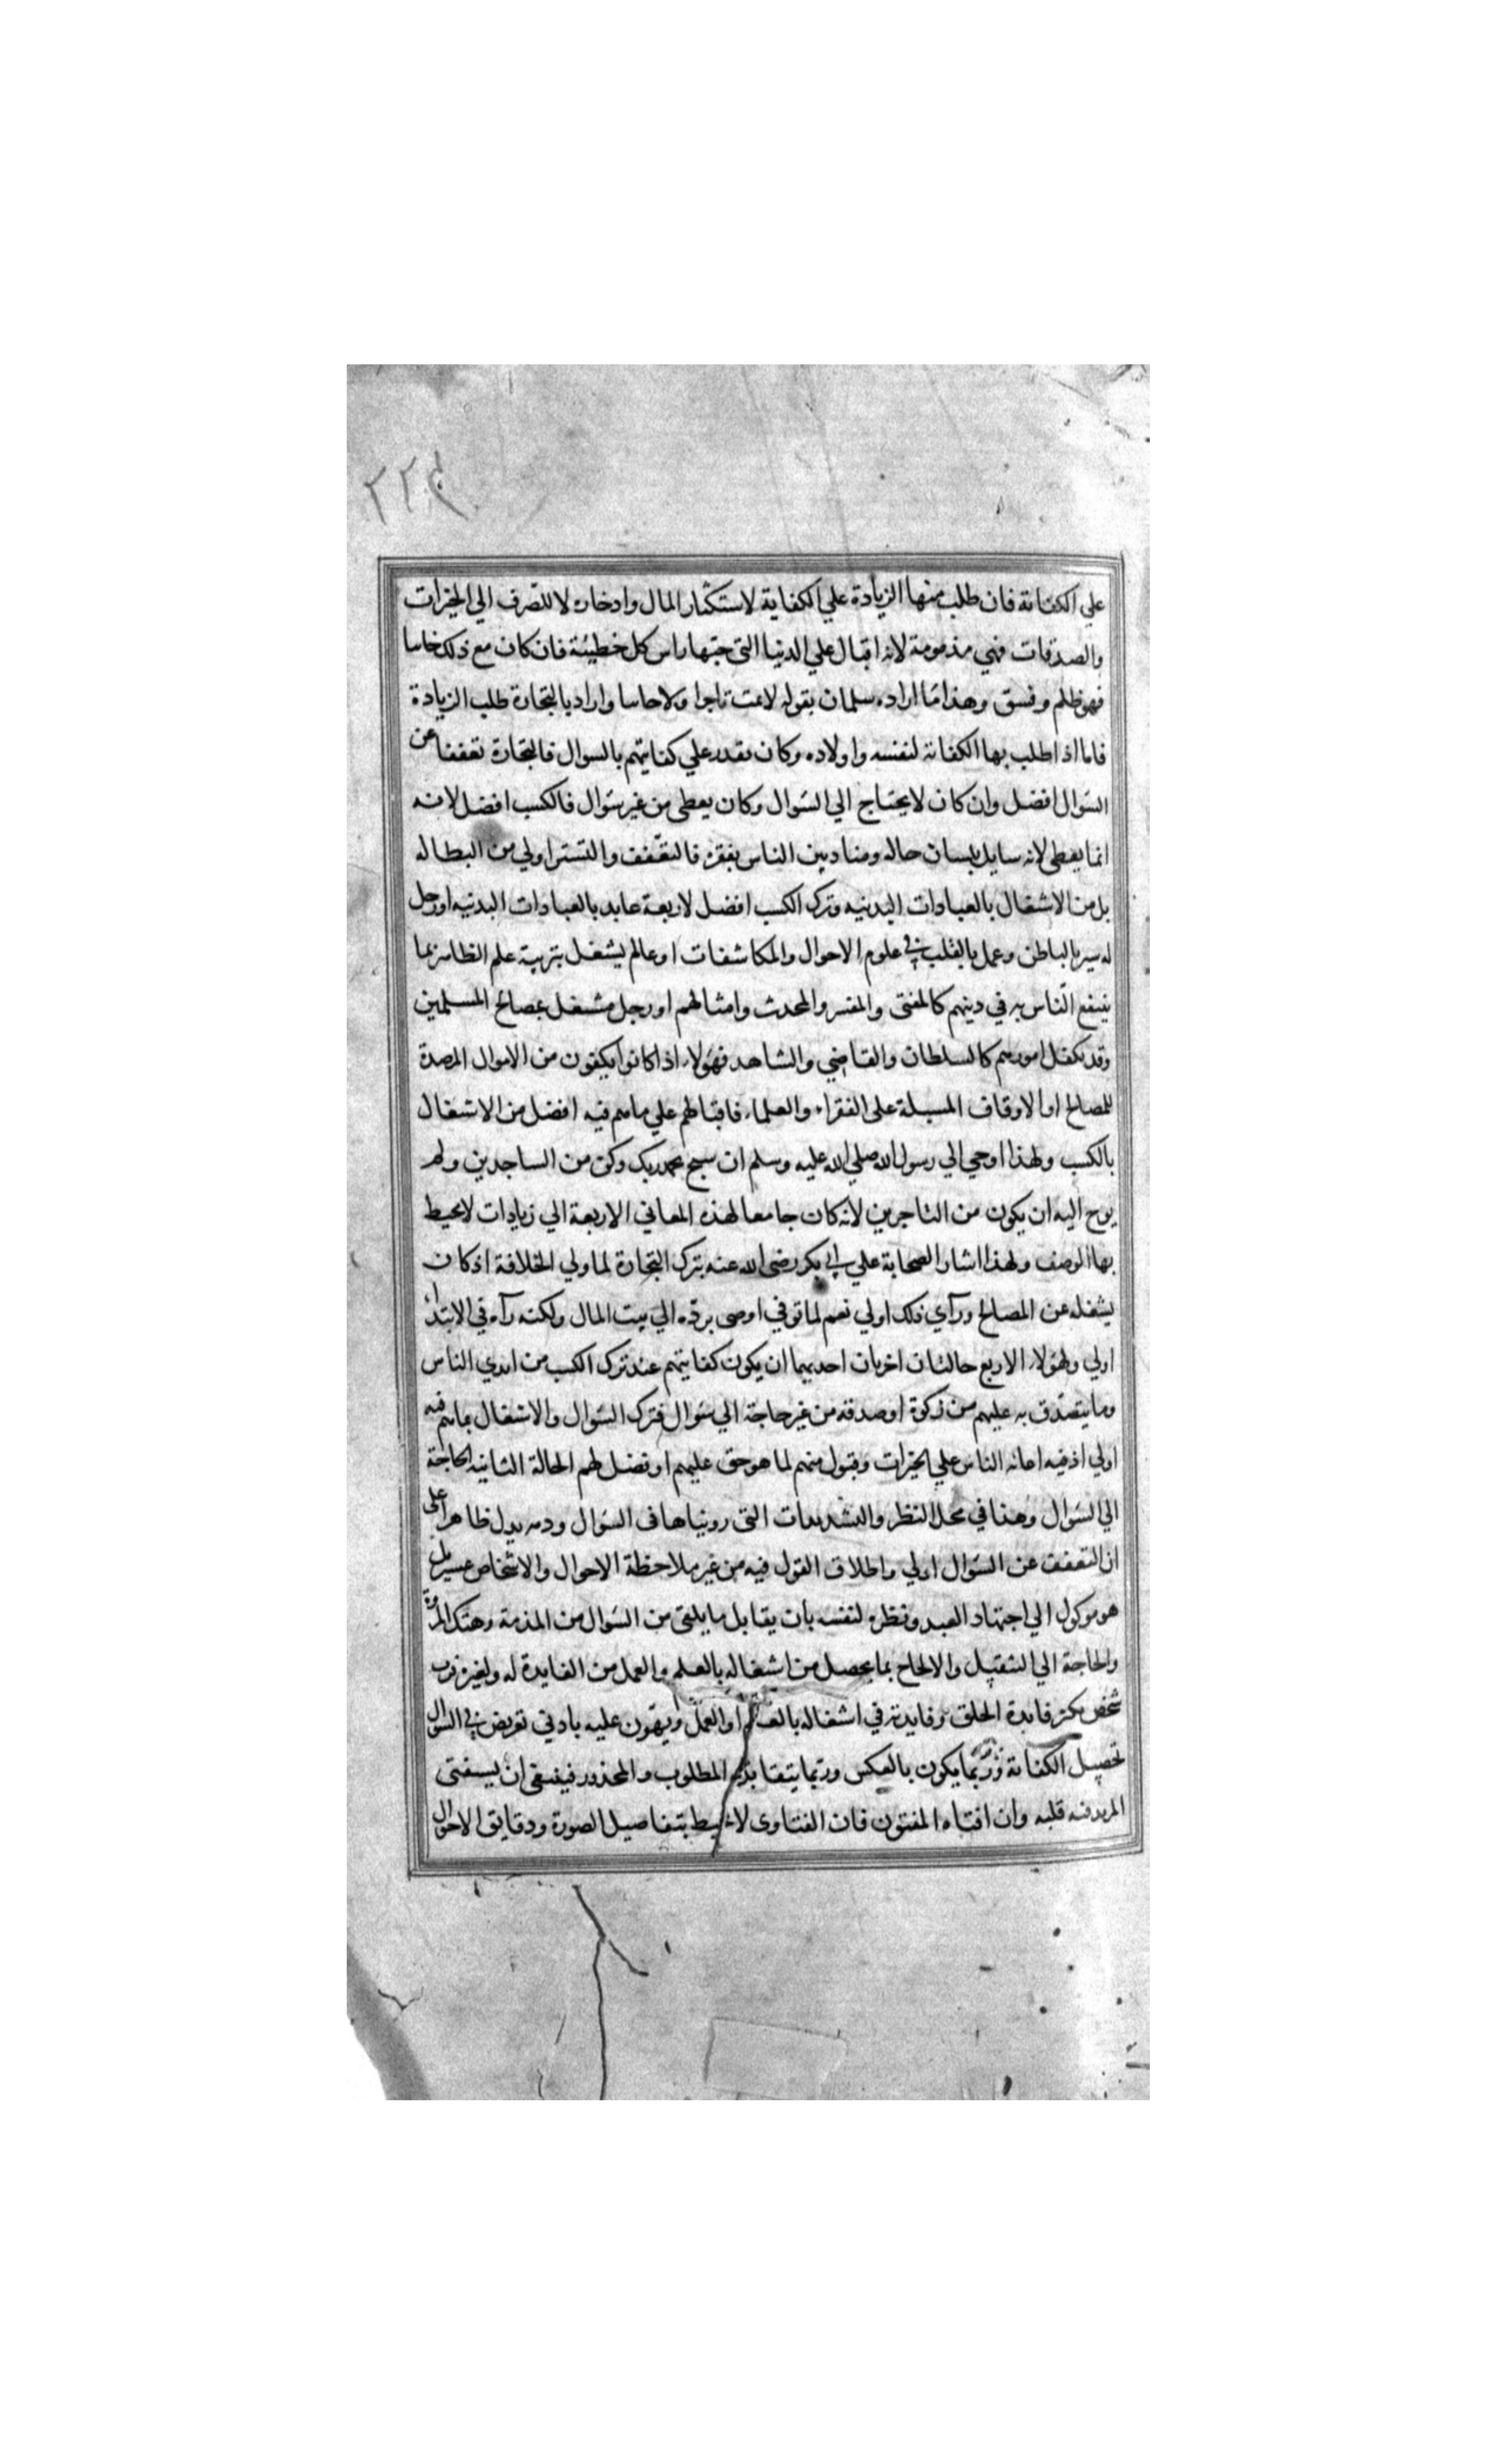 ٢٢٤
علي الكفاىة فان طلب منها الزيادة علي الكفاية لاستكثار المال وادخاره لا للتصرف الي الخيرات
والصدقات فهي مذمومة لانه اقبال علي الدنيا التي حبها راس كل خطيئة فان كان مع ذلك خاىنا
فهو ظلم وفسق وهذا ما اراده سلمان بقوله لا تمت تاجرا ولا خاىنا واراد بالتجارة طلب الزيادة
فاما اذا طلب بها الكفاىة لنفسه واولاده وكان ىقدر علي كفايتهم بالسوال فالتجارة تعففا عن
السؤال افضل وان كان لا يحتاج الي السؤال وكان يعطى من غير سؤال فالكسب افضل لانه
انما يعطى لانه سايل بلسان حاله ومناد بين الناس بفقره فالتعفف والتستر اولي من البطاله
بل من الاشتغال بالعبادات البدنيه وترك الكسب افضل لاربعة عابد بالعبادات البدنيه او رجل
له سير بالباطن وعمل بالقلب في علوم الاحوال والمكاشفات او عالم يشتغل بتربية علم الظاهر بما
ينتفع الناس به في دينهم كالمفتى والمفسر والمحدث وامثالهم او رجل مشتغل بمصالح المسلمين
وقد تكفل امورهم كالسلطان والقاضي والشاهد فهؤلاء اذا كانوا يكفون من الاموال المرصدة
للمصالح او الاوقاف المسبلة على الفقراء والعلماء فاقبالهم علي ما هم فيه افضل من الاشتغال
بالكسب ولهذا اوحي الي رسول الله صلي الله عليه وسلم ان سبح بحمد ربك وكن من الساجدين ولم
يوح اليه ان يكون من التاجرين لانه كان جامعا لهذه المعاني الاربعة الي زيادات لا يحيط
بها الوصف ولهذا اشار الصحابة علي ابي بكر رضى الله عنه بترك التجارة لما ولي الخلافة اذ كان
يشغله عن المصالح ورآي ذلك اولي نعم لما توفي اوصى بردّه الي بيت المال ولكنه رآه في الابتداء
اولي ولهؤلاء الاربع حالتان اخريان احديهما ان يكون كفايتهم عند ترك الكسب من ايدي الناس
وما يتصدق به عليهم من زكوة او صدقة من غير حاجة الي سؤال فترك السؤال والاشتغال بما هم فيه
اولي اذ فيه اعانه الناس علي الخيرات وقبول منهم لما هو حق عليهم او فضل لهم الحالة الثانيه الحاجة
الي السؤال وهذا في محل النظر والتشديدات التي رويناها في السؤال وذمه يدل ظاهرا على
ان التعفف عن السؤال اولي واطلاق القول فيه من غير ملاحظة الاحوال والاشخاص عسير بل
هو موكول الي اجتهاد العبد ونظره لنفسه بان يقابل ما يلقى من السؤال من المذمة وهتك المروة
والحاجة الي التثقيل والالحاح بما يحصل من اشتغاله بالعلم والعمل من الفايدة له ولغيره فرب
شخص يكثر فايدة الخلق وفايدته في اشتغاله بالعلم او العمل ويهون عليه بادني تعريض في السؤال
تحصيل الكفاىة وربما يكون بالعكس وربما يتقابل المطلوب والمحذور فينبغي ان يستفتى
المريد فيه قلبه وان افتاه المفتون فان الفتاوى لا تحيط بتفاصيل الصورة ودقايق الاحوال